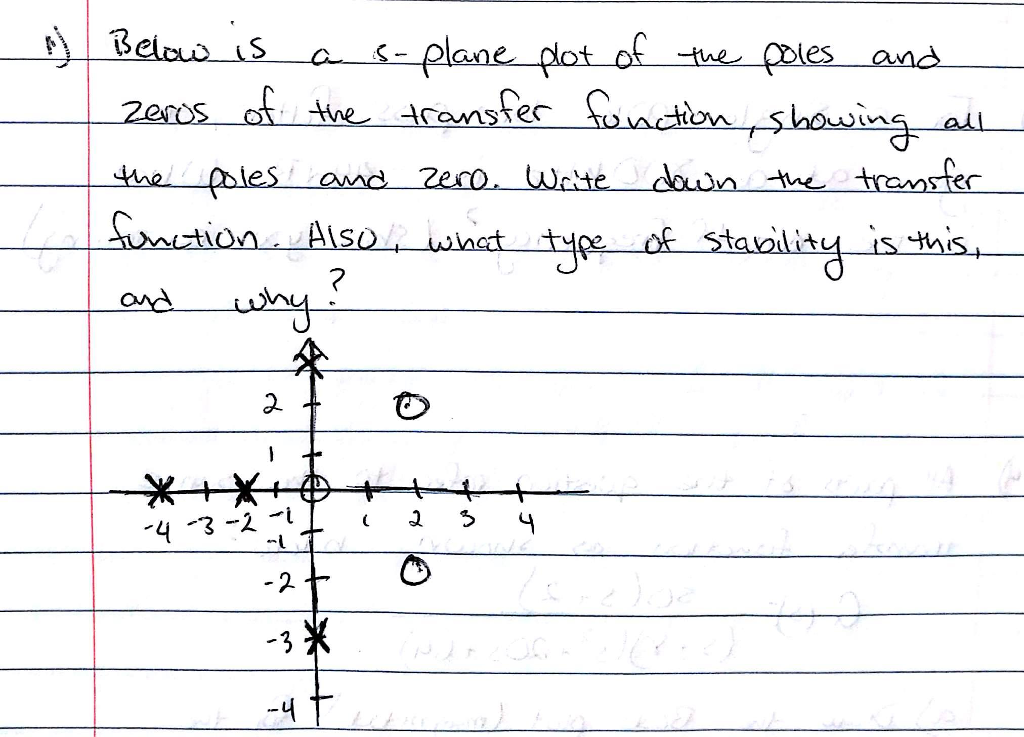 1) Below is a s-plane plot of the poles and
zeros of the transfer function, showing all
the poles and zero. Write down the transfer
function. Also, what type of stability is this,
and why?
2
1
-4 -3 -2 -1 1 2 3 4
-1
-2
-3
-4